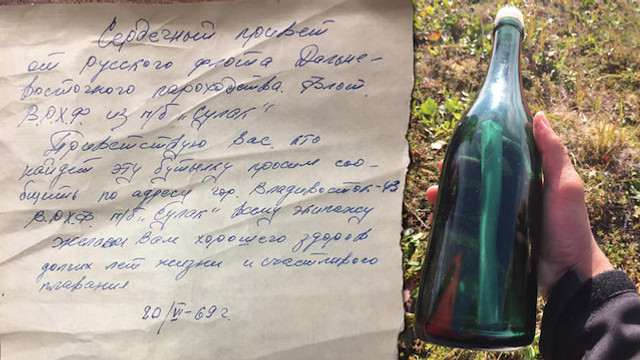 Сердечный привет
от русского флота Дальне-
восточного пароходства. Флот.
В.О.Х.Ф. из п/б "Сулак"
Приветствую Вас, кто
найдет эту бутылку просим соо-
бщить по адресу гор. Владивосток-43
В.О.Х.Ф. п/б "Сулак" всему экипажу
желаем Вам хорошего здоров
долгих лет жизни и счастливого
плавания
20/VI-69г.